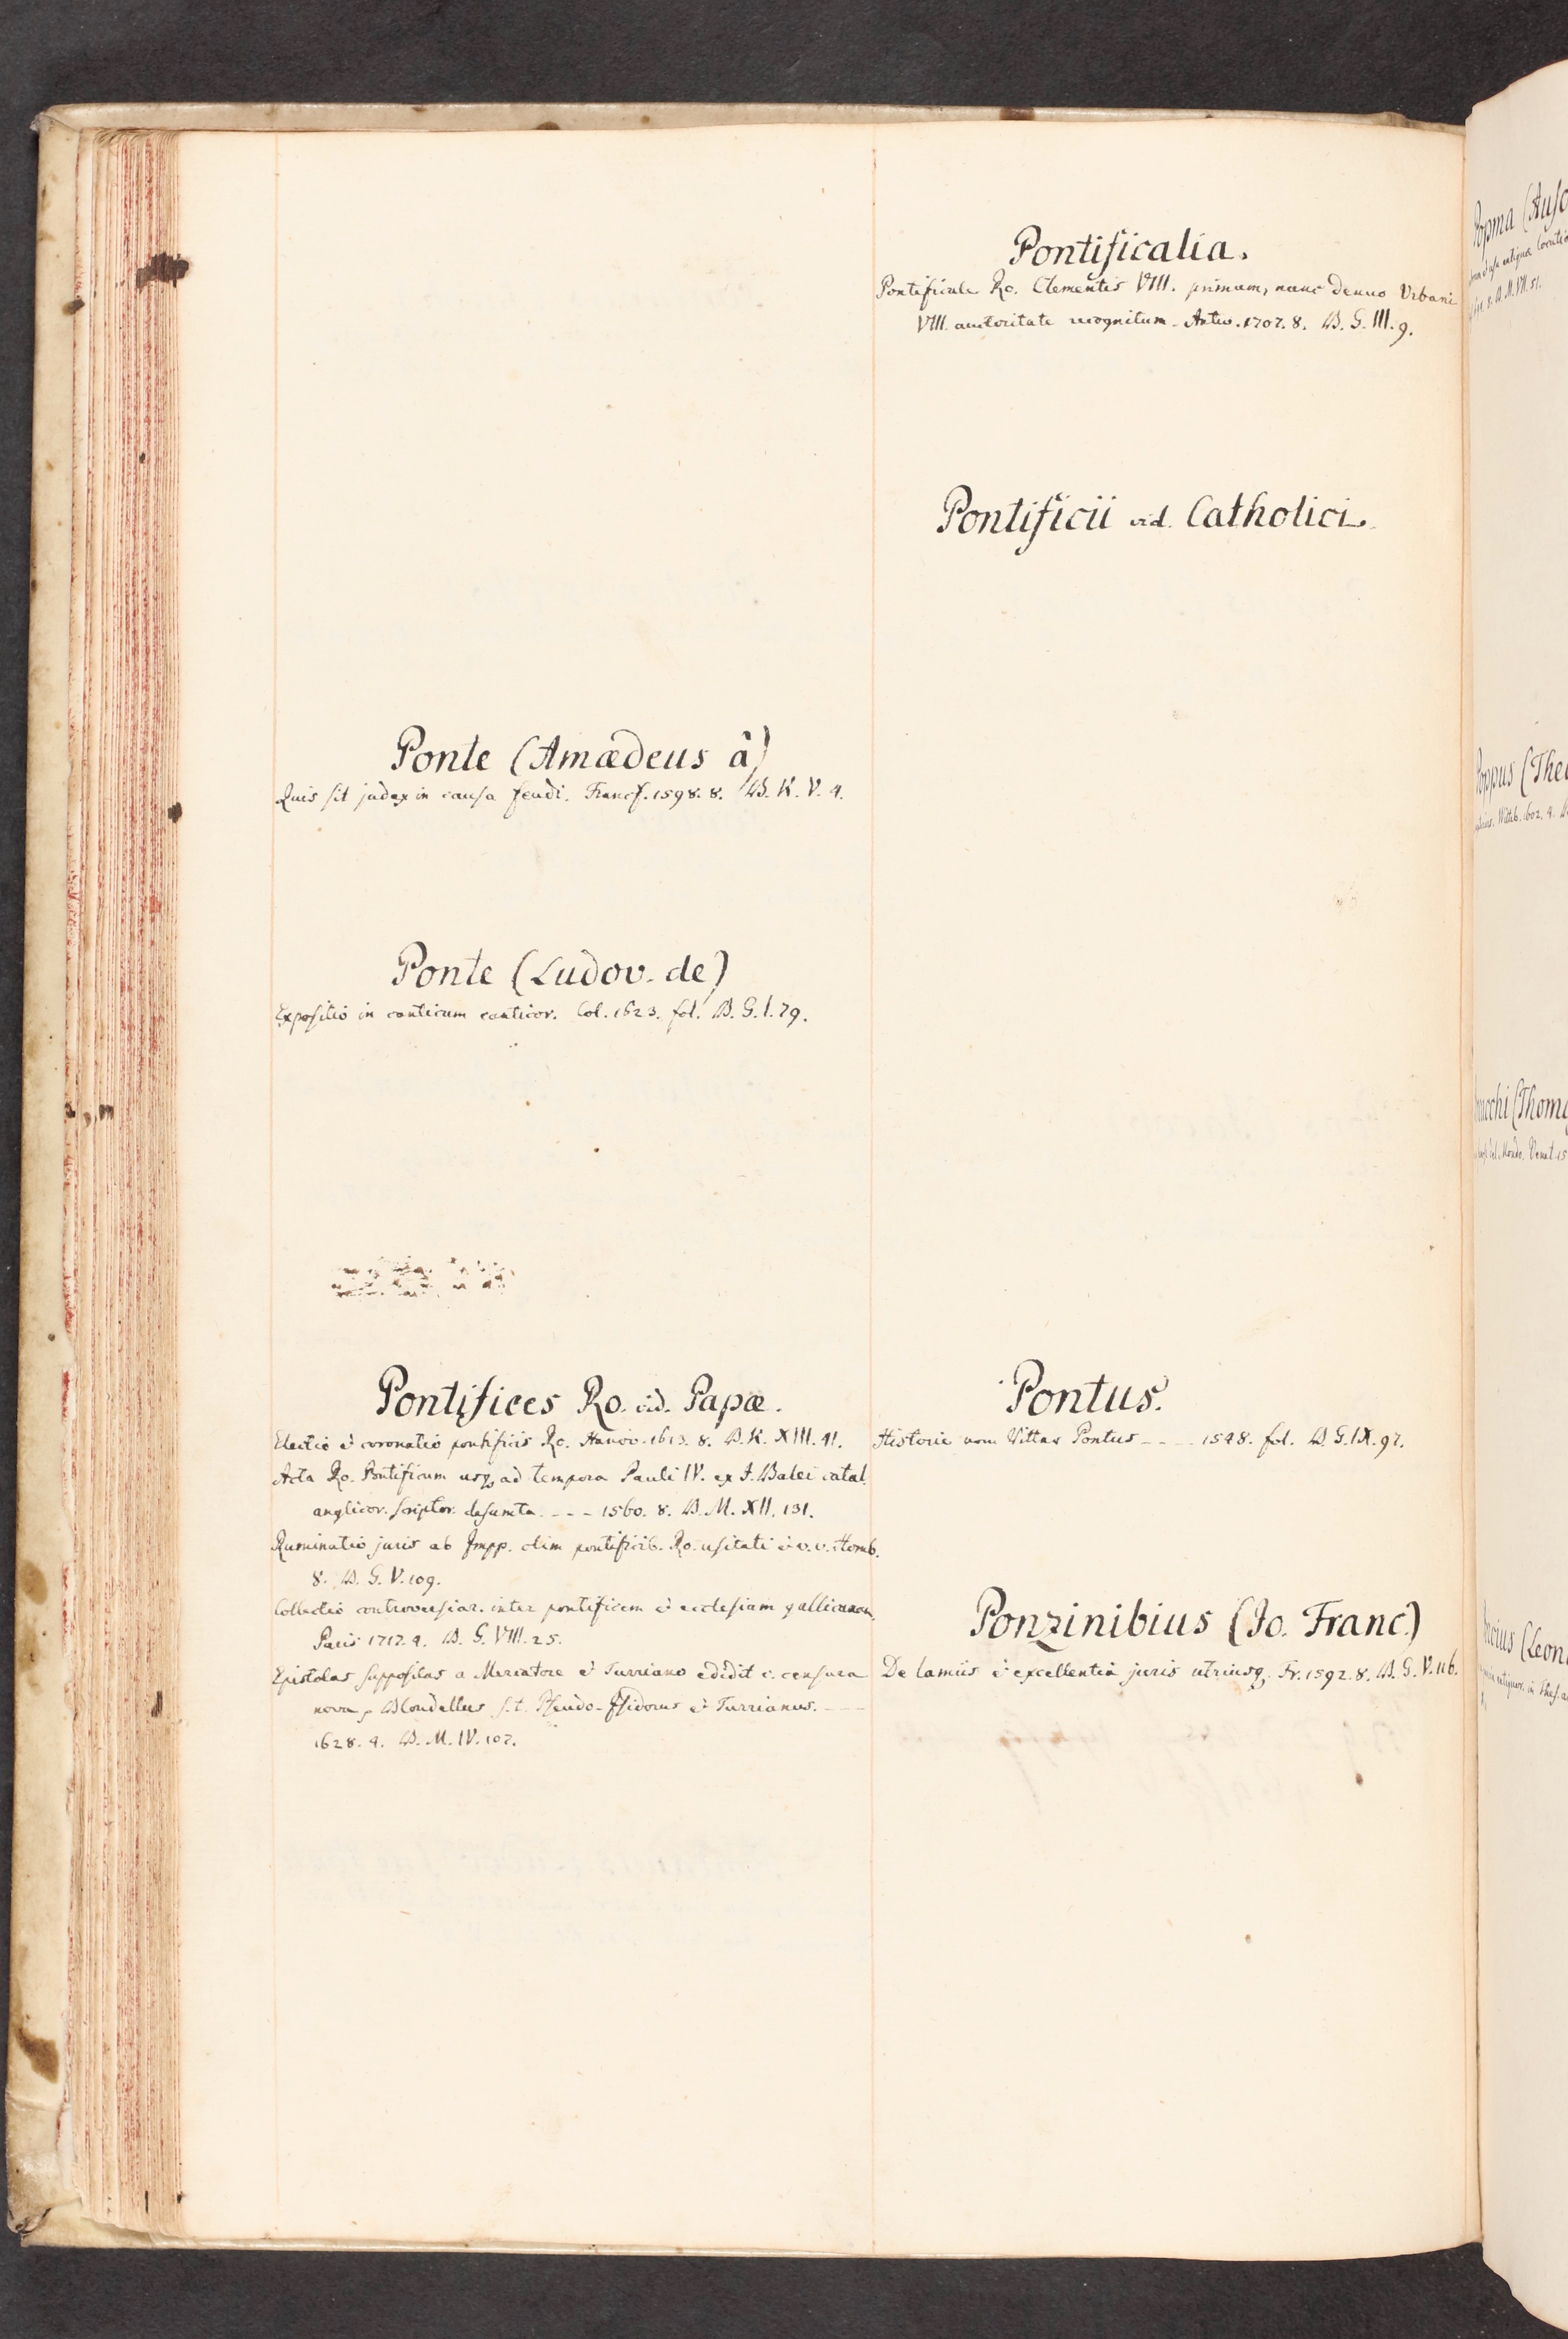 Ponte (Amædeus â)
Quis sit judex in causa feudi. Francf. 1598. 8. B. K. V. 4.
Ponte (Ludov. de)
Expositio in canticum canticor. Col. 1623. fol. B. G. I. 79.
Pontifices Ro. vid. Papæ.
Electio & coronatio pontificis Ro. Hanov. 1613. 8. B. K. XIII. 41.
Acta Ro. Pontificum usq, ad tempora Pauli IV. ex J. Balei catal.
anglicor. scriptor. desumta. - - - 1560. 8. B. M. XII. 131.
Ruminatio juris ab Impp. olim pontificib. Ro. usitati &
8. B. G. V. 109.
Collectio controversiar. inter pontificem & ecclesiam gallicanam.
Paris 1717. 4. B. G. VIII. 25.
Epistolas suppositas a Mercatore & Turriano edidit c. censura
nova Blondellus s. t. Pseudo-Isidorus & Turrianus. - - -
1628. 4. B. M. IV. 107.
Pontificalia.
Pontificale Ro. Clementis VIII. primum, nunc denuo Urbani
VIII. auctoritate recognitum. Antw. 1707. 8. B. G. III. 9.
Pontificii vid. Catholici.
Pontus.
Historie vom Ritter Pontus - - - - 1548. fol. B. G. IX. 97.
Ponzinibius (Jo. Franc.)
De lamiis & excellentia juris utriusq. Fr. 1592. 8. B. G. V. 116.
Popma (Auso
Poppus (The
Witeb. 1602. 4.
(Thoma
del Mondo. Venet. 15
(Leon